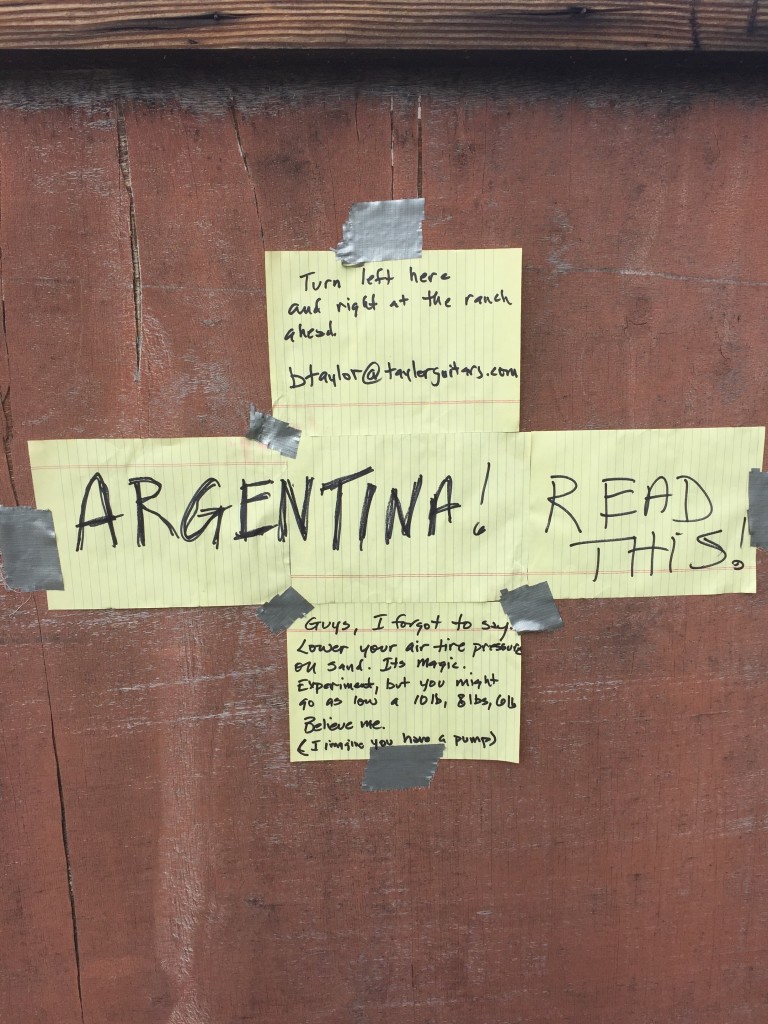 Turn left here
and right at the ranch
ahead.
btaylor@taylorguitars.com
ARGENTINA! READ
THIS!
Guys, I forgot to say.
Lower your air tire pressure
on sand. Its magic.
Experiment, but you might
go as low a 10lb, 8lbs, 6lb
Believe me.
(I imgine you have a pump)